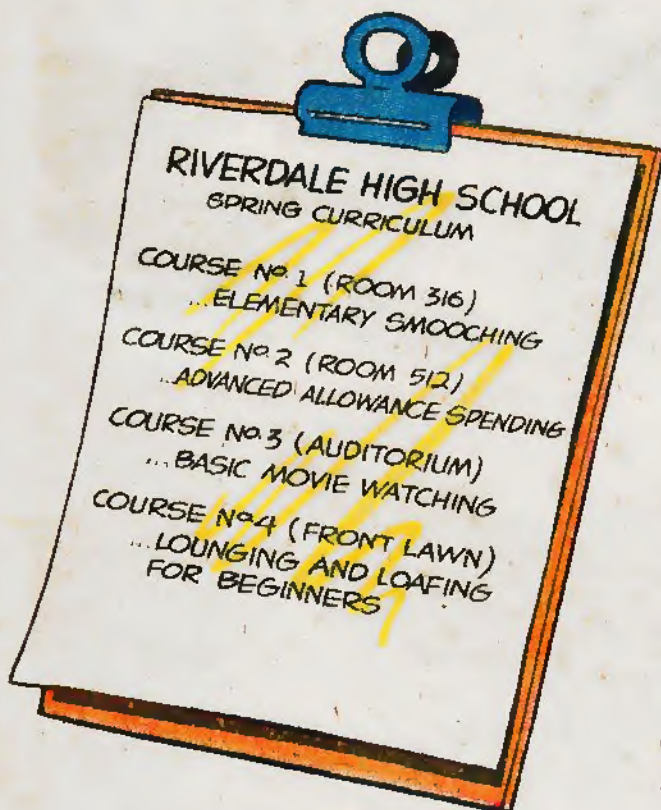 RIVERDALE HIGH SCHOOL
SPRING CURRICULUM
COURSE Nº 1 (ROOM 316)
...ELEMENTARY SMOOCHING
COURSE Nº 2 (ROOM 512)
...ADVANCED ALLOWANCE SPENDING
COURSE Nº 3 (AUDITORIUM)
...BASIC MOVIE WATCHING
COURSE Nº 4 (FRONT LAWN)
...LOUNGING AND LOAFING
FOR BEGINNERS